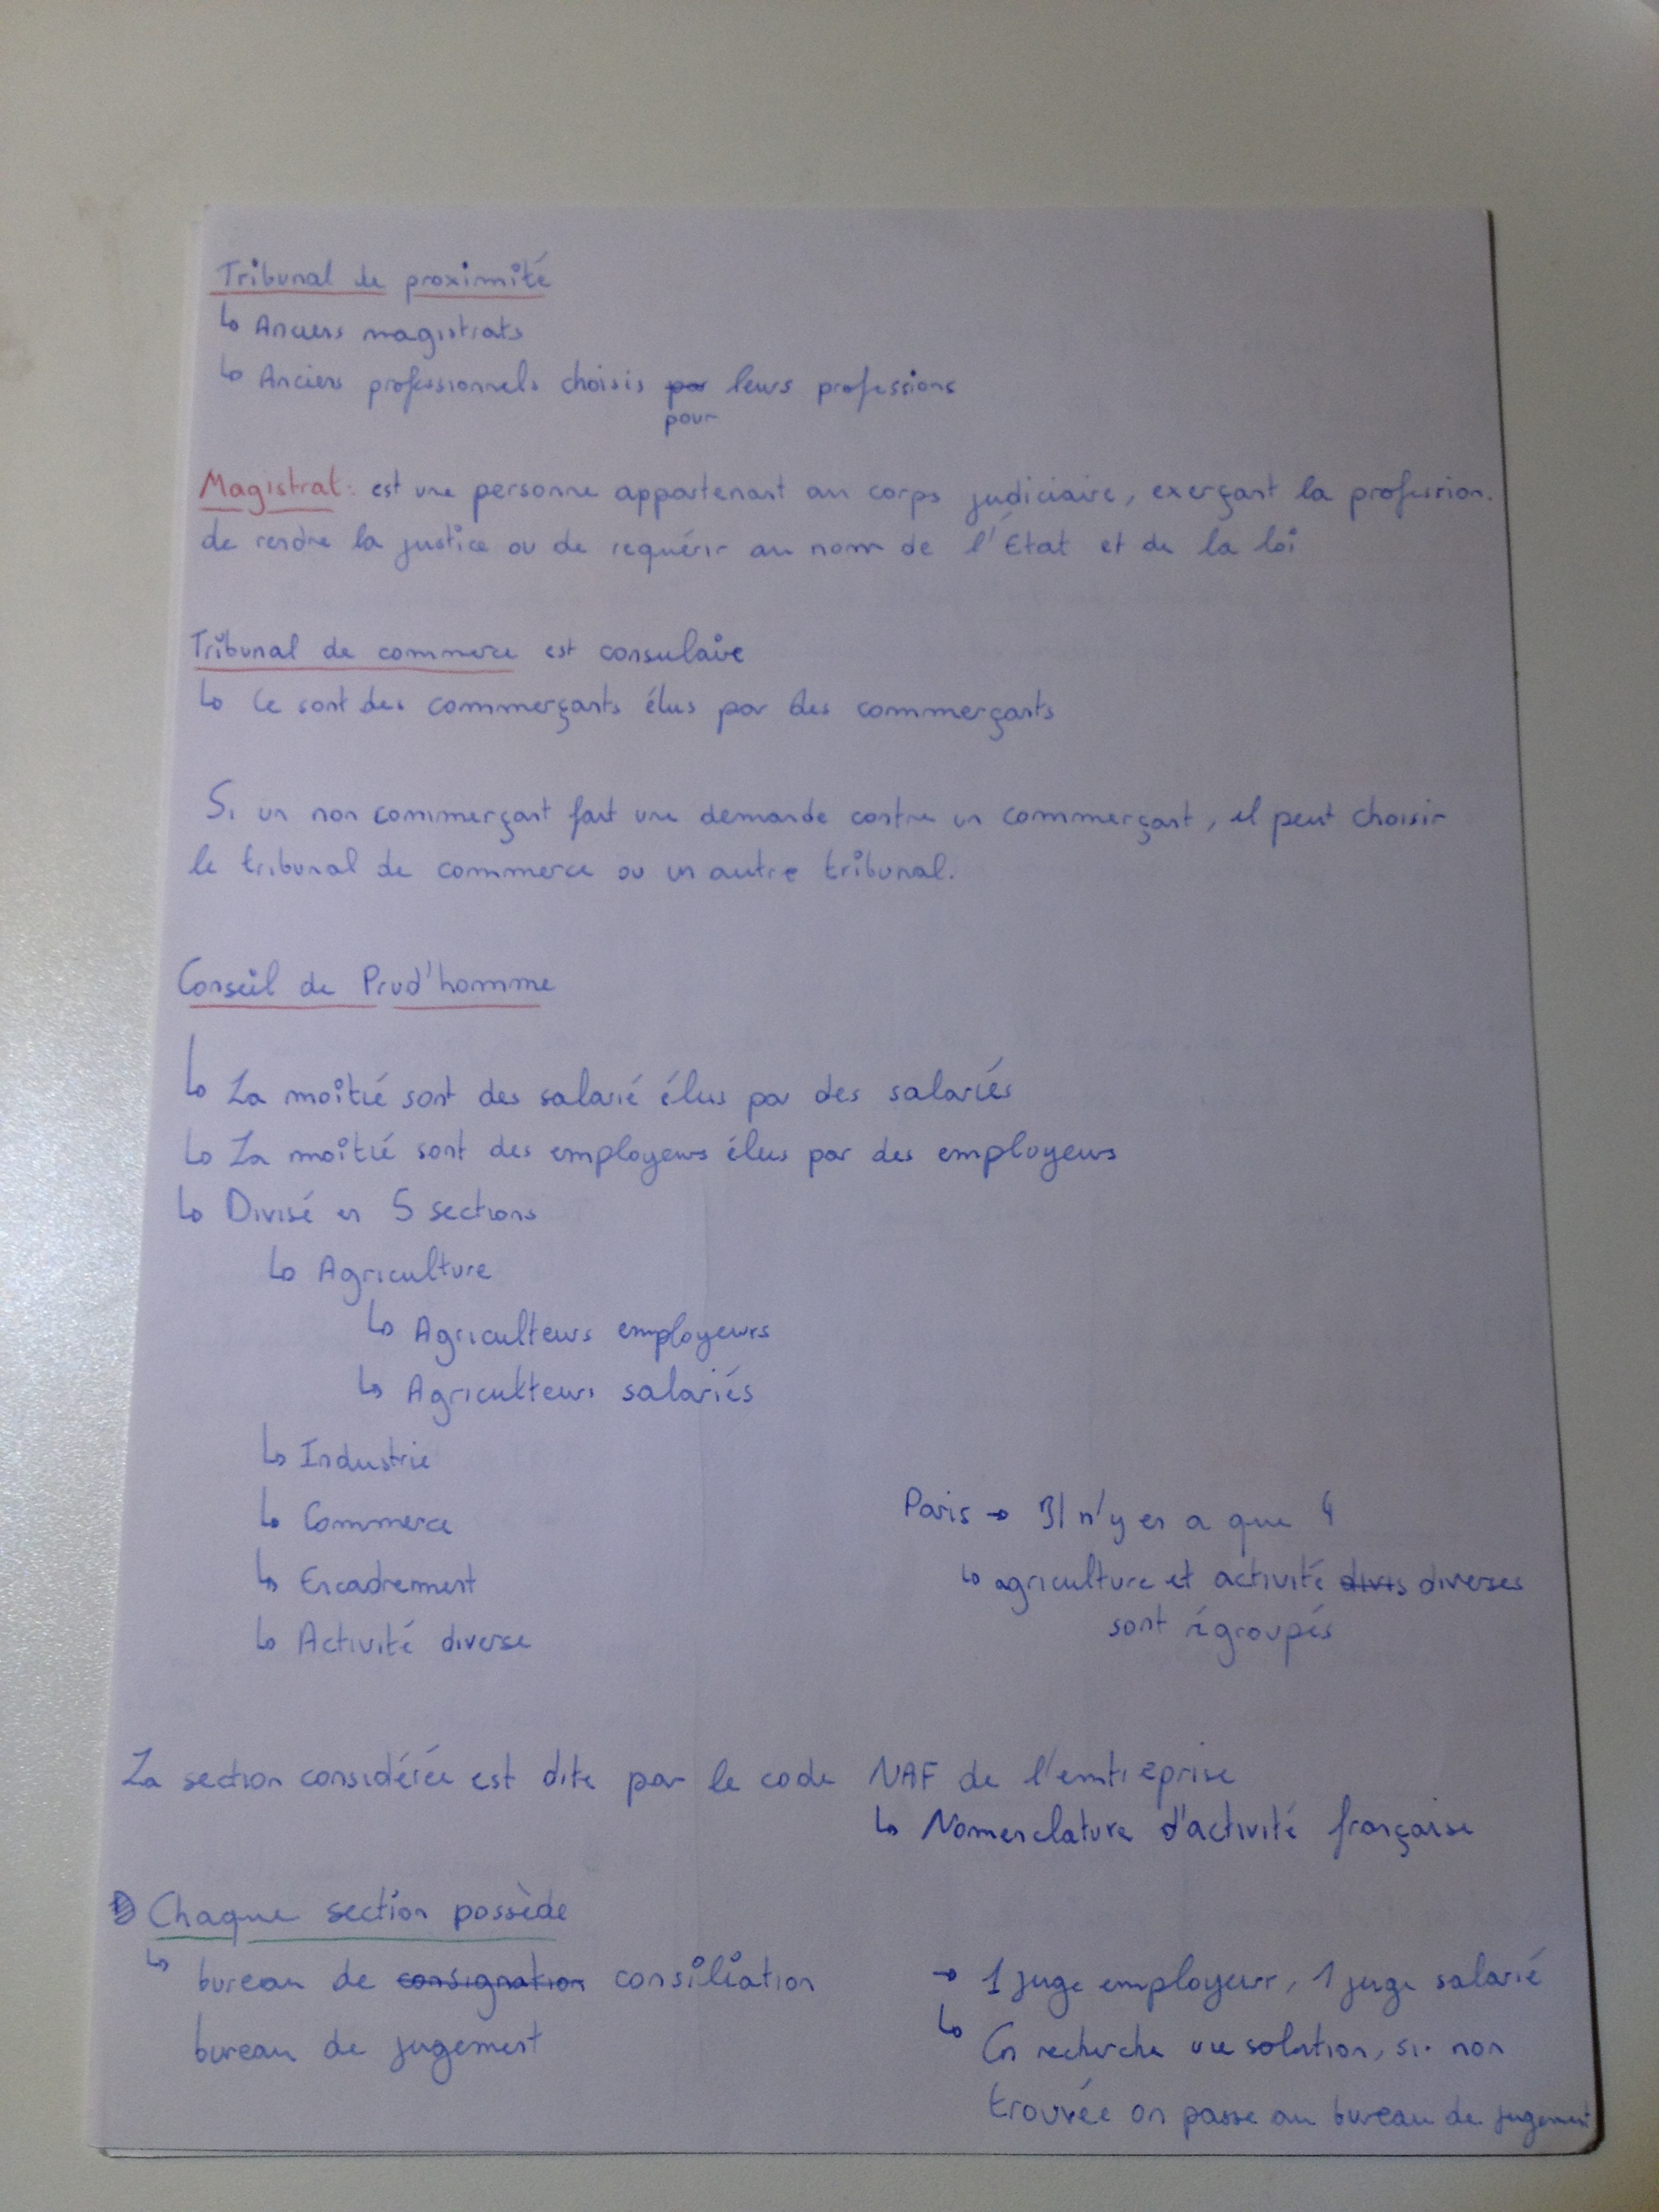 Tribunal de proximité
↳ Anciens magistrats
↳ Anciens professionnels choisis par leurs professions
pour
Magistrat : est une personne appartenant au corps judiciaire, exerçant la profession.
de rendre la justice ou de requérir au nom de l'État et de la loi
Tribunal de commerce est consulaire
↳ Ce sont des commerçants élus par des commerçants
Si un non commerçant fait une demande contre un commerçant, il peut choisir
le tribunal de commerce ou un autre tribunal.
Conseil de Prud'homme
↳ La moitié sont des salarié élus par des salariés
↳ La moitié sont des employeurs élus par des employeurs
↳ Divisé en 5 sections
↳ Agriculture
↳ Agriculteurs employeurs
↳ Agriculteurs salariés
↳ Industrie
↳ Commerce
↳ Encadrement
↳ Activité diverse
Paris → Il n'y en a que 4
↳ agriculture et activité divis diverses
sont régroupés
La section considérée est dite par le code NAF de l'emtreprise
↳ Nomenclature d'activité française
Chaque section possède
↳ bureau de consignation consiliation
bureau de jugement
→ 1 juge employeur, 1 juge salarié
↳ On recherche une solution, si non
trouvée on passe au bureau de jugement